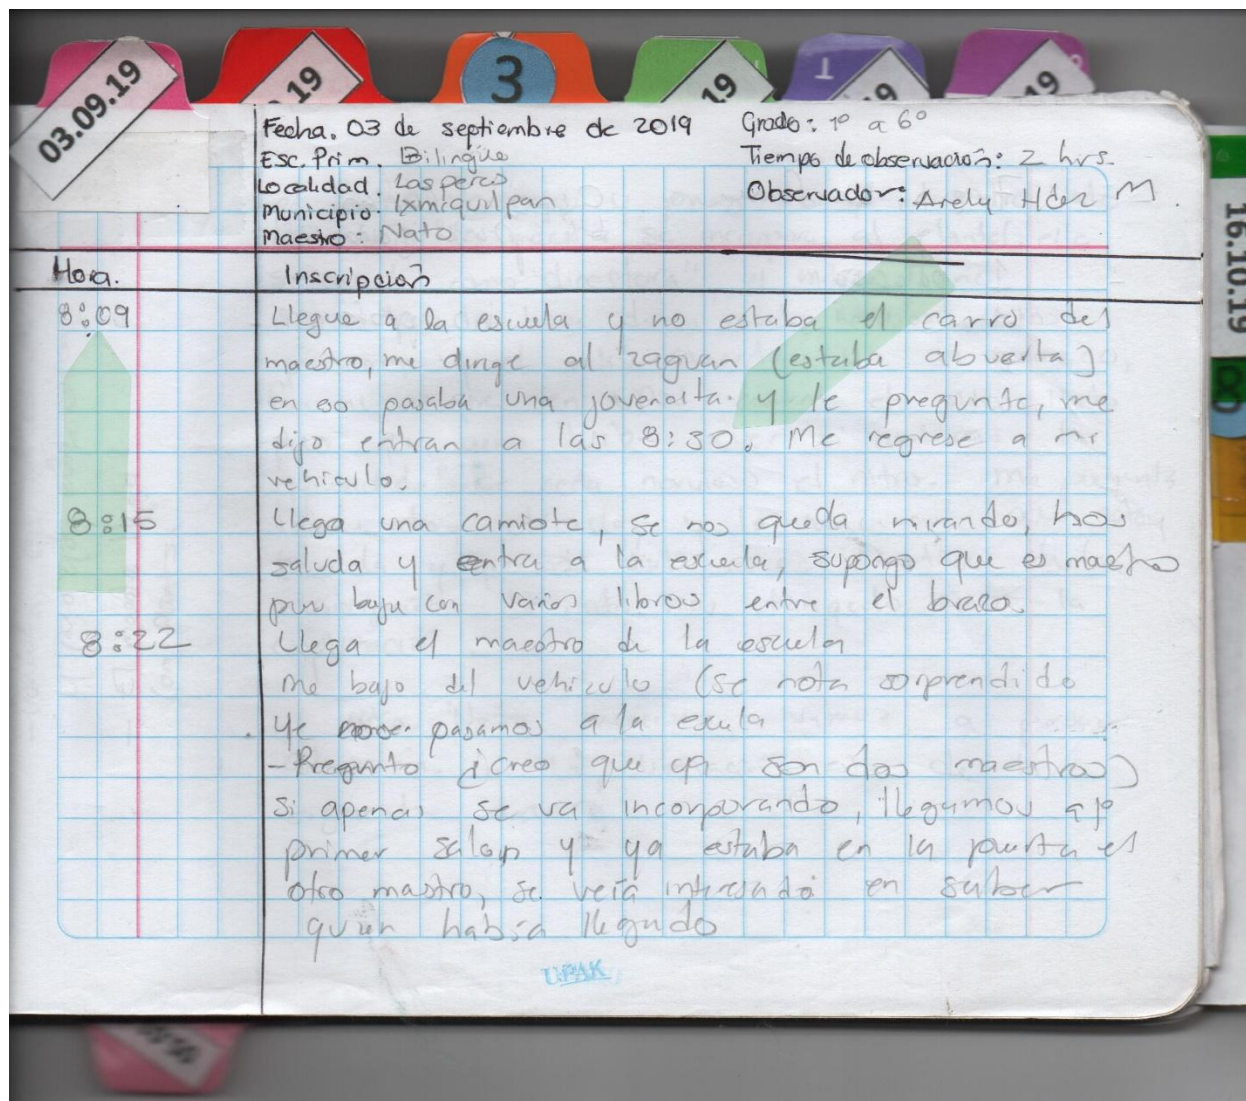 03.09.19
.19
3
19
19
19
16.10.19
Fecha. 03 de septiembre de 2019
Grado: 1º a 6º
Esc. Prim. Bilingüe
Tiempo de observación: 2 hrs.
Localidad.
Observador: Arely Hdez M.
Municipio. Ixmiquilpan
Maestro: Nato
Hora.
Inscripción
8:09
Llegue a la escuela y no estaba el carro del
maestro, me dirige al zaguan (estaba abuerta)
en eso pasaba una jovencita. y le pregunte, me
dijo entran a las 8:30. Me regrese a mi
vehiculo.
8:15
Llega una camiote, se nos queda mirando, nos
saluda y entra a la escuela, supongo que es maestro
baja con varios libros entre el brazo.
8:22
Llega el maestro de la escuela
me bajo del vehiculo (se nota sorprendido
pasamos a la escula
- Pregunto ¿creo que son dos maestros)
Si apenas se va incorporando, llegamos al
primer salon y ya estaba en la puerta el
otro mastro, se veía interesado en saber
quien había llegado
UPAK